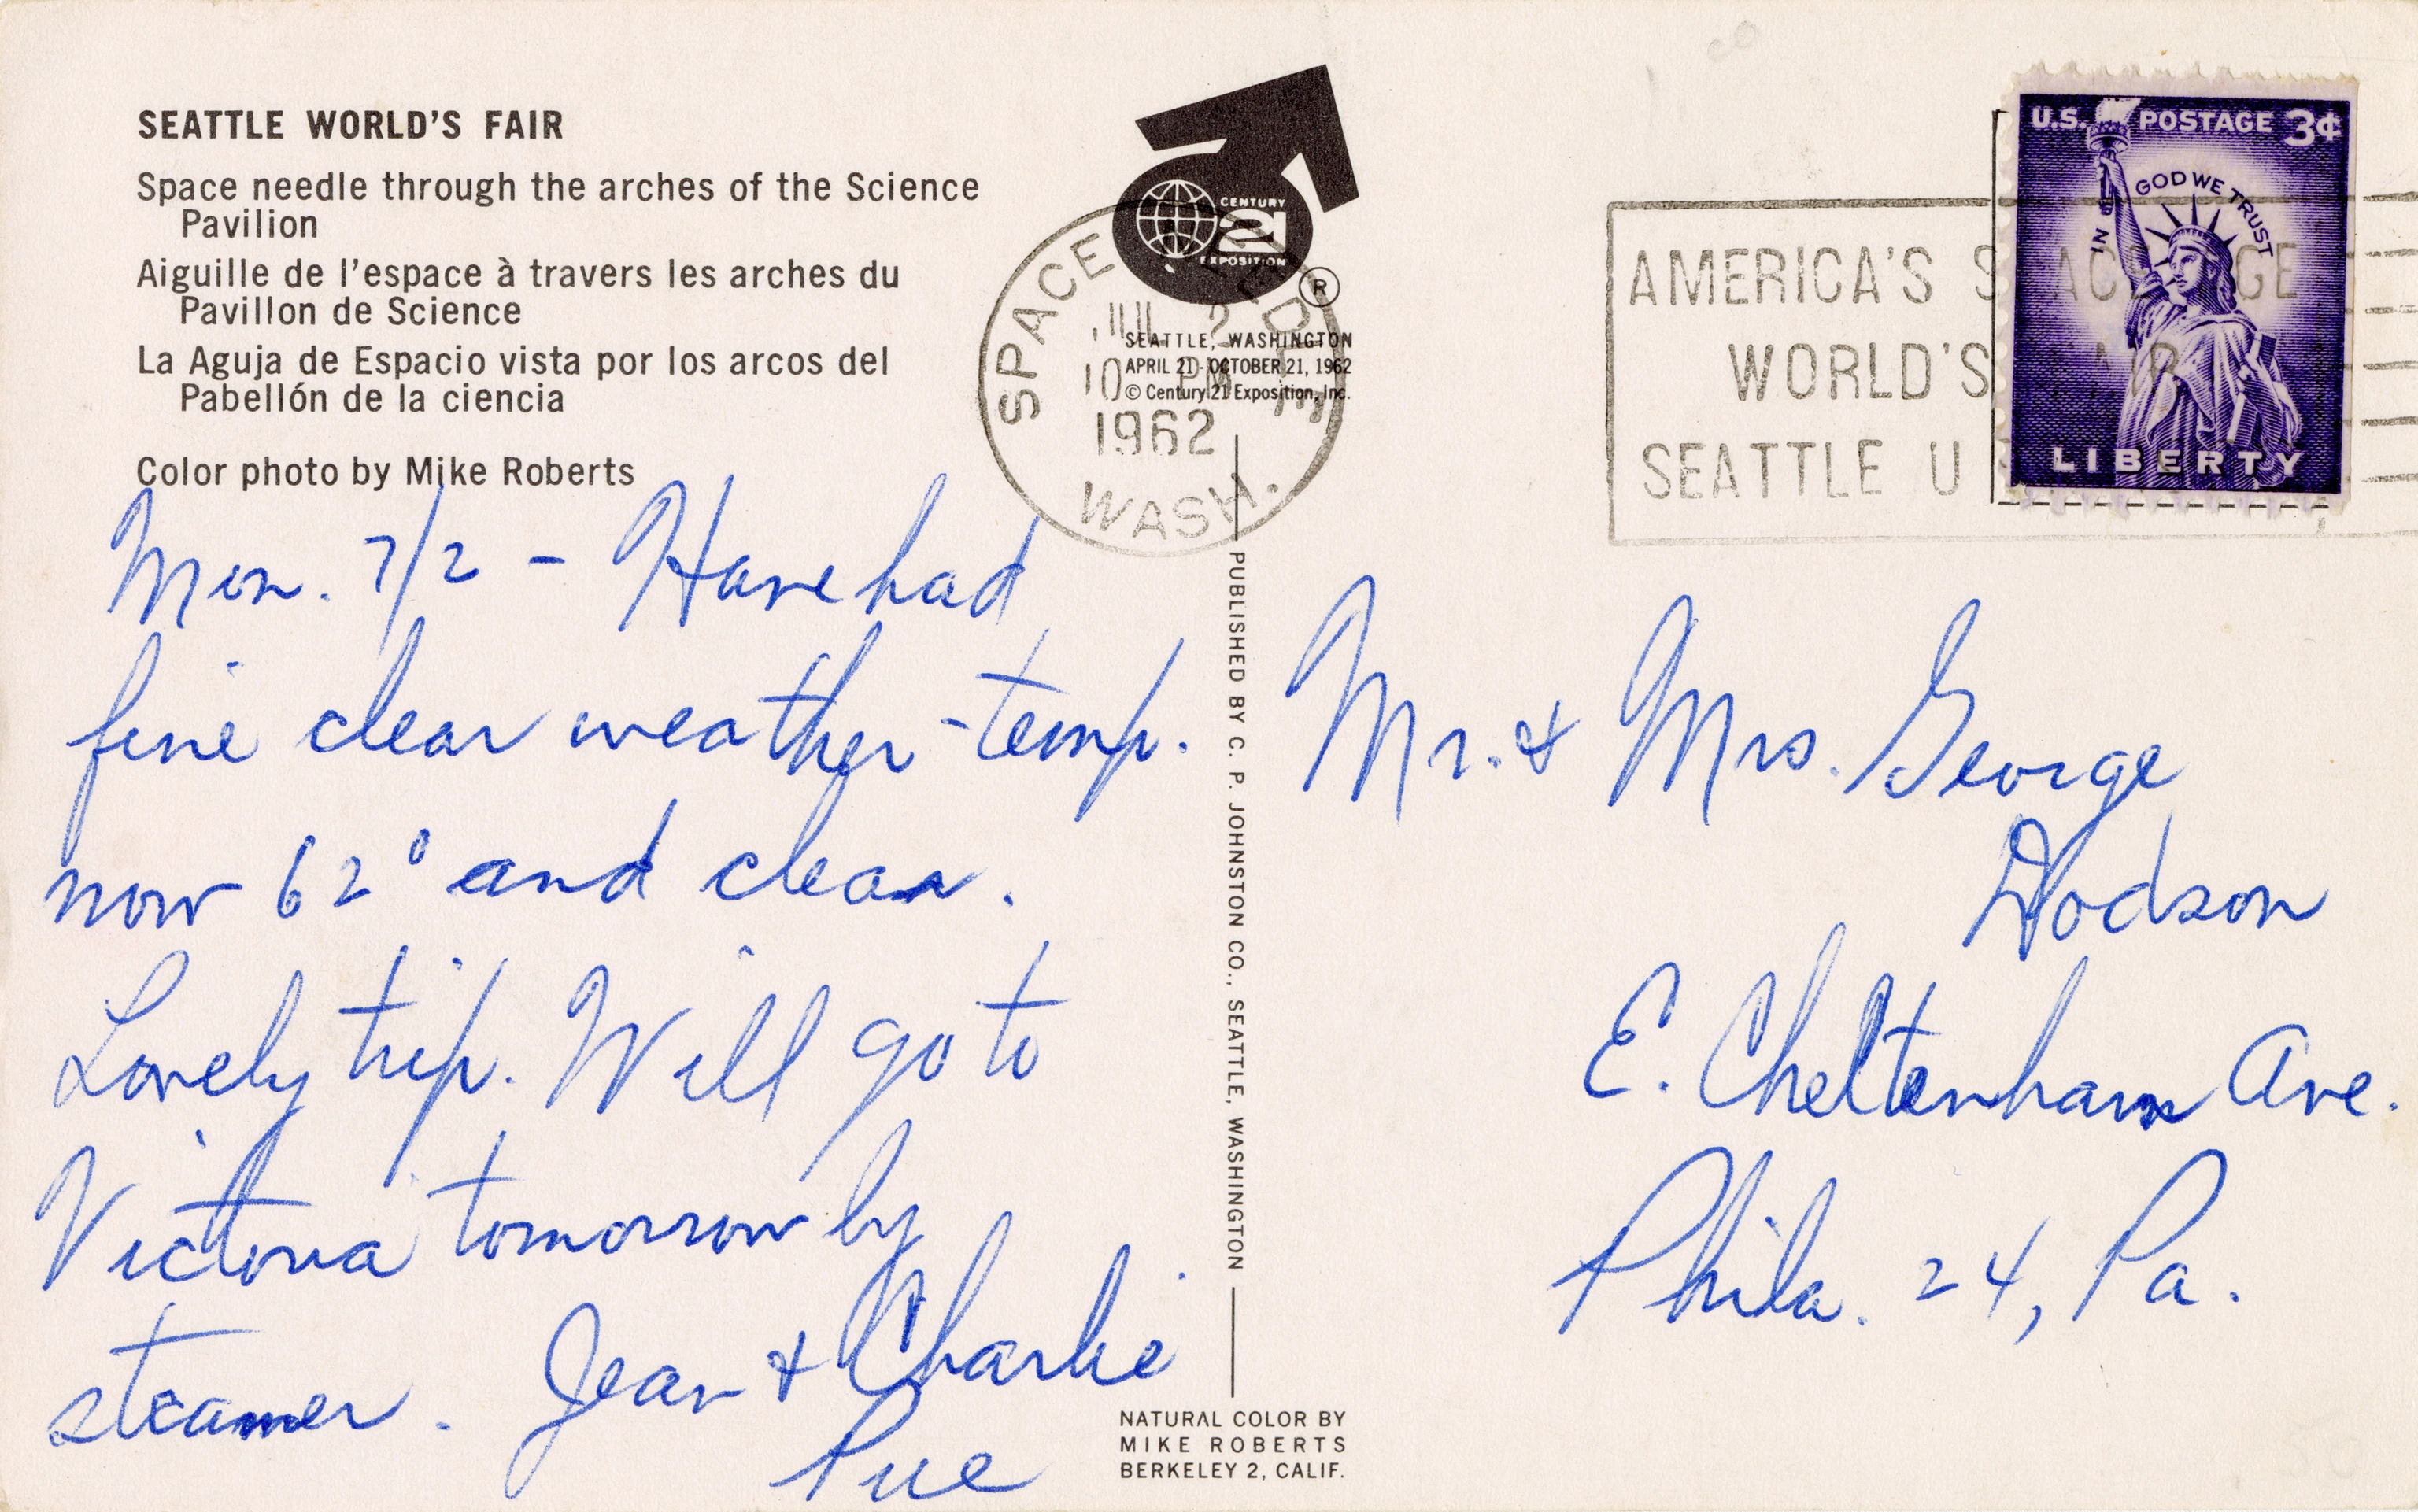 SEATTLE WORLD'S FAIR
Space needle through the arches of the Science
Pavilion
Aiguille de l'espace à travers les arches du
Pavillon de Science
La Aguja de Espacio vista por los arcos del
Pabellón de la ciencia
Color photo by Mike Roberts
CENTURY
21
EXPOSITION
®
SEATTLE, WASHINGTON
APRIL 21 - OCTOBER 21, 1962
© Century 21 Exposition, Inc.
SPACE
JUL 2
10 PM
1962
WASH.
AMERICA'S SPACE AGE
WORLD'S FAIR
SEATTLE U
U.S. POSTAGE 3¢
IN GOD WE TRUST
LIBERTY
Mon. 7/2 – Have had
fine clear weather – temp.
now 62° and clear.
Lovely trip. Will go to
Victoria tomorrow by
steamer. Jean & Charlie
Pue
PUBLISHED BY C. P. JOHNSTON CO., SEATTLE, WASHINGTON
Mr. & Mrs. George
Dodson
E. Cheltenham Ave.
Phila. 24, Pa.
NATURAL COLOR BY
MIKE ROBERTS
BERKELEY 2, CALIF.